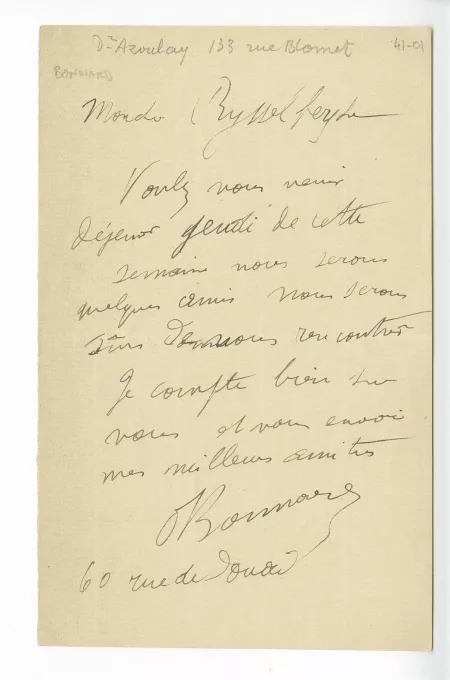 Dr Azoulay 133 rue Blomet 41-01
BONNARD
Mon cher Rysselberghe
Voulez vous venir
déjeuner jeudi de cette
semaine nous serons
quelques amis nous serons
sûrs de nous rencontrer
Je compte bien sur
vous et vous envoie
mes meilleurs amitiés
PBonnard
60 rue de Douai